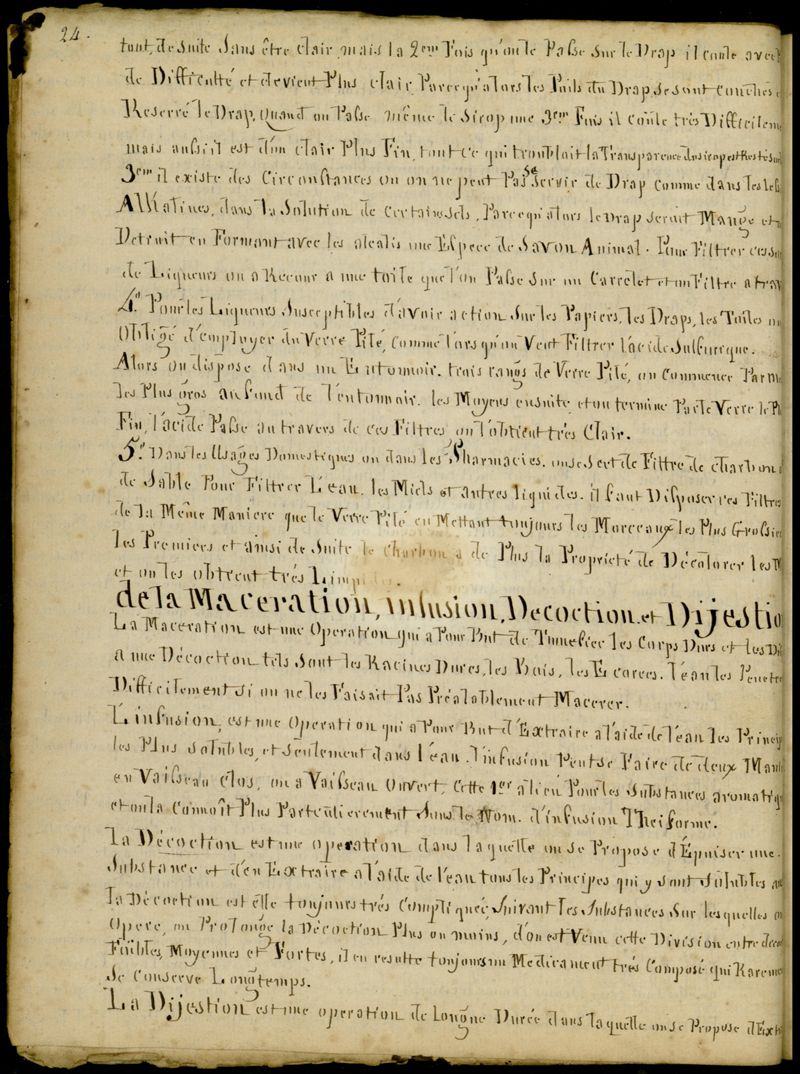 24.
tout de suite sans être clair, mais la 2eme Fois qu'on le Passe sur le Drap il coule avec
de Difficulté et devient Plus clair Parcequ'alors les Poils du Drap se sont couchés e
Resserré le Drap, Quand on Passe même le Sirop une 3eme Fois il coule très Difficileme
mais aussi il est d'un clair Plus Fin, tout ce qui troublait la Transparence du sirop
3eme il existe des Circonstances ou on ne peut Pas se servir de Drap comme dans les
Alkalines, dans la Solution de Certains Sels, Parcequ'alors le Drap serait Mangé et
Détruit en Formant avec les alcalis une Espece de Savon Animal. Pour Filtrer ces
de Liqueurs on a Recour a une toile que l'on Passe sur un Carrelet et on Filtre a trav
4° Pour les Liqueurs susceptibles d'avoir action sur les Papiers, les Draps, les Toiles on
Obligé d'employer du Verre Pilé, comme lorsqu'on veut Filtrer l'acide Sulfurique.
Alors on dispose dans un Entonnoir. trois rangs de Verre Pilé, on Commence Par me
les Plus gros au fond de l'entonnoir. les Moyens ensuite et on termine Par le Verre le Pl
Fin, l'acide Passe au travers de ces Filtres on l'obtient très Clair.
5° Dans les Usages Domestiques ou dans les Pharmacies. on se sert de Filtre de charbon
de Sable Pour Filtrer L'eau. les Miels et autres liquides. il faut Disposer ces Filtres
de la Même Maniere que le Verre Pilé en Mettant toujours les Morceaux les Plus Grossie
les Premiers et ainsi de suite le charbon a de Plus la Propriété de Décolorer les M
et on les obtient très Limp
de la Maceration, infusion, Decoction, et Dijestio
La Maceration est une Operation qui a Pour But de Tumefier les Corps Durs et les Di
a une Decoction tels Sont les Racines Dures, les Bois, les Ecorces. l'eau les Penetre
Difficilement si on ne les Faisait Pas Préalablement Macerer.
L'infusion, est une Operation qui a Pour But d'Extraire a l'aide de l'eau les Princip
les Plus solubles, et seulement dans l'eau. l'infusion Peut se Faire de deux Mani
en Vaisseau Clos, ou a Vaisseau Ouvert. Cette 1er a lieu Pour les Substances aromatiqu
et on la Connoit Plus Particulierement sous le Nom. d'infusion Theiforme.
La Décoction est une operation dans laquelle on se Propose d'Epuiser une
Substance et d'en Extraire a l'aide de l'eau tous les Principes qui y sont solubles au
la Décoction est elle toujours très Compliquée, suivant les Substances sur lesquelles on
Opere, on Prolonge la Décoction Plus ou moins, d'on est Venu cette Division entre decoc
Faibles, Moyennes et Fortes, il en resulte toujours un Medicament très Composé qui Rareme
se Conserve Longtemps.
La Dijestion est une operation de Longue Durée dans laquelle on se Propose d'Ext